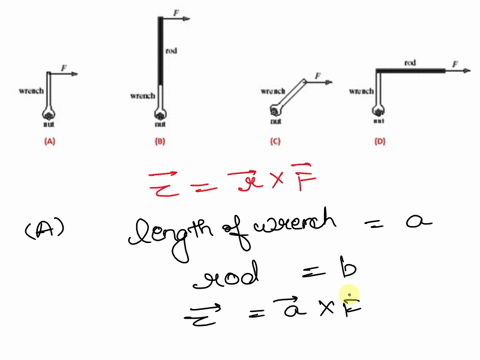 F
rod
wrench
nut
(A)
F
rod
wrench
nut
(B)
F
wrench
nut
(C)
rod
F
wrench
nut
(D)
τ⃗ = r⃗ × F⃗
(A) length of wrench = a
rod = b
τ⃗ = a⃗ × F